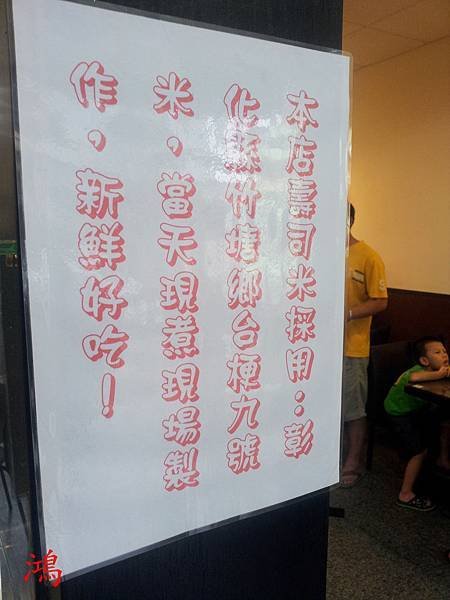 本店壽司米採用：彰
化縣竹塘鄉台梗九號
米，當天現煮現場製
作，新鮮好吃！
鴻